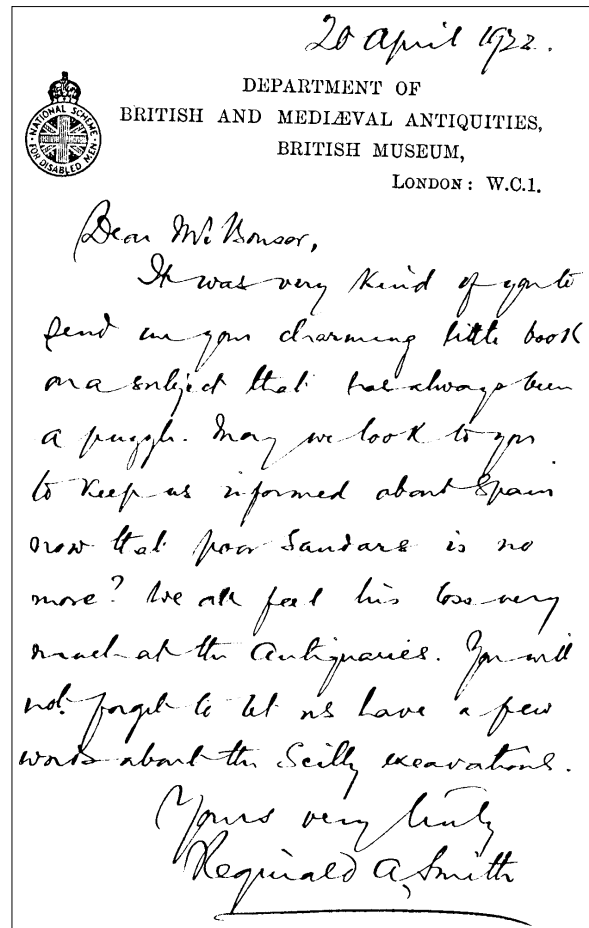 20 April 1922.
DEPARTMENT OF
BRITISH AND MEDIÆVAL ANTIQUITIES,
BRITISH MUSEUM,
LONDON: W.C.1.
NATIONAL SCHEME
FOR DISABLED MEN
Dear Mr. Bonsor,
It was very kind of you to
send me your charming little book
on a subject that has always been
a puzzle. May we look to you
to keep us informed about Spain
now that poor Sandars is no
more? We all feel his loss very
much at the Antiquaries. You will
not forget to let us have a few
words about the Scilly excavations.
Yours very truly
Reginald A. Smith